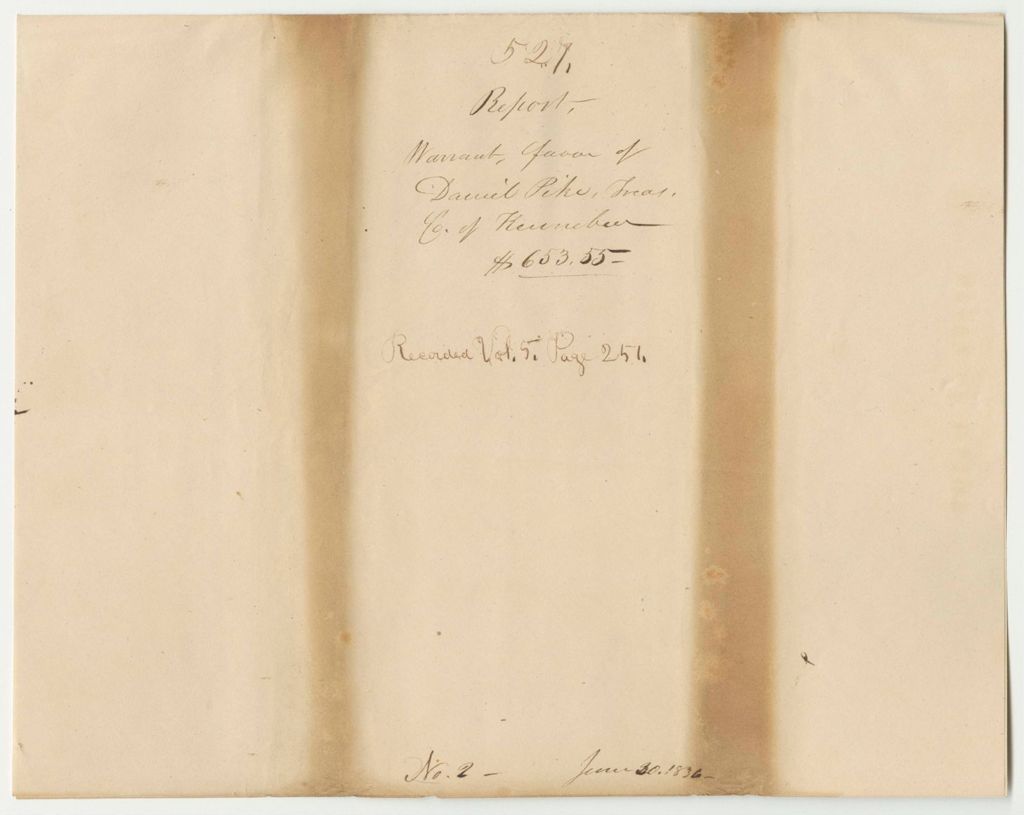 527.
Report,
Warrant, favor of
Daniel Pike, Treas.
Co. of Kennebec
$653.55-
Recorded Vol. 5. Page 251.
No. 2 -
June 30. 1836-